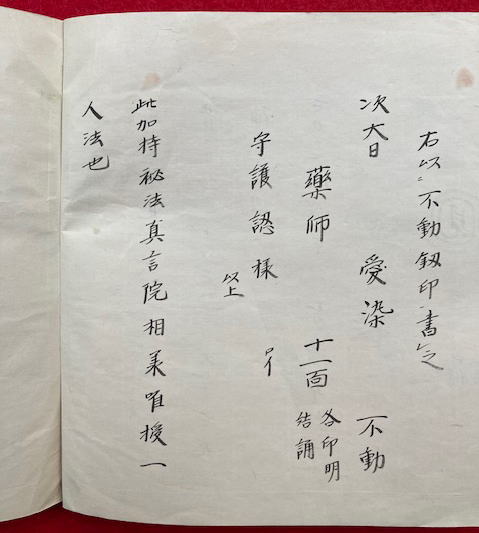 右以ニ不動釼印書之
次大日 愛染 不動
藥師 十一面 各印明
結誦
守護認様
以上
此加持祕法真言院相承唯授一
人法也